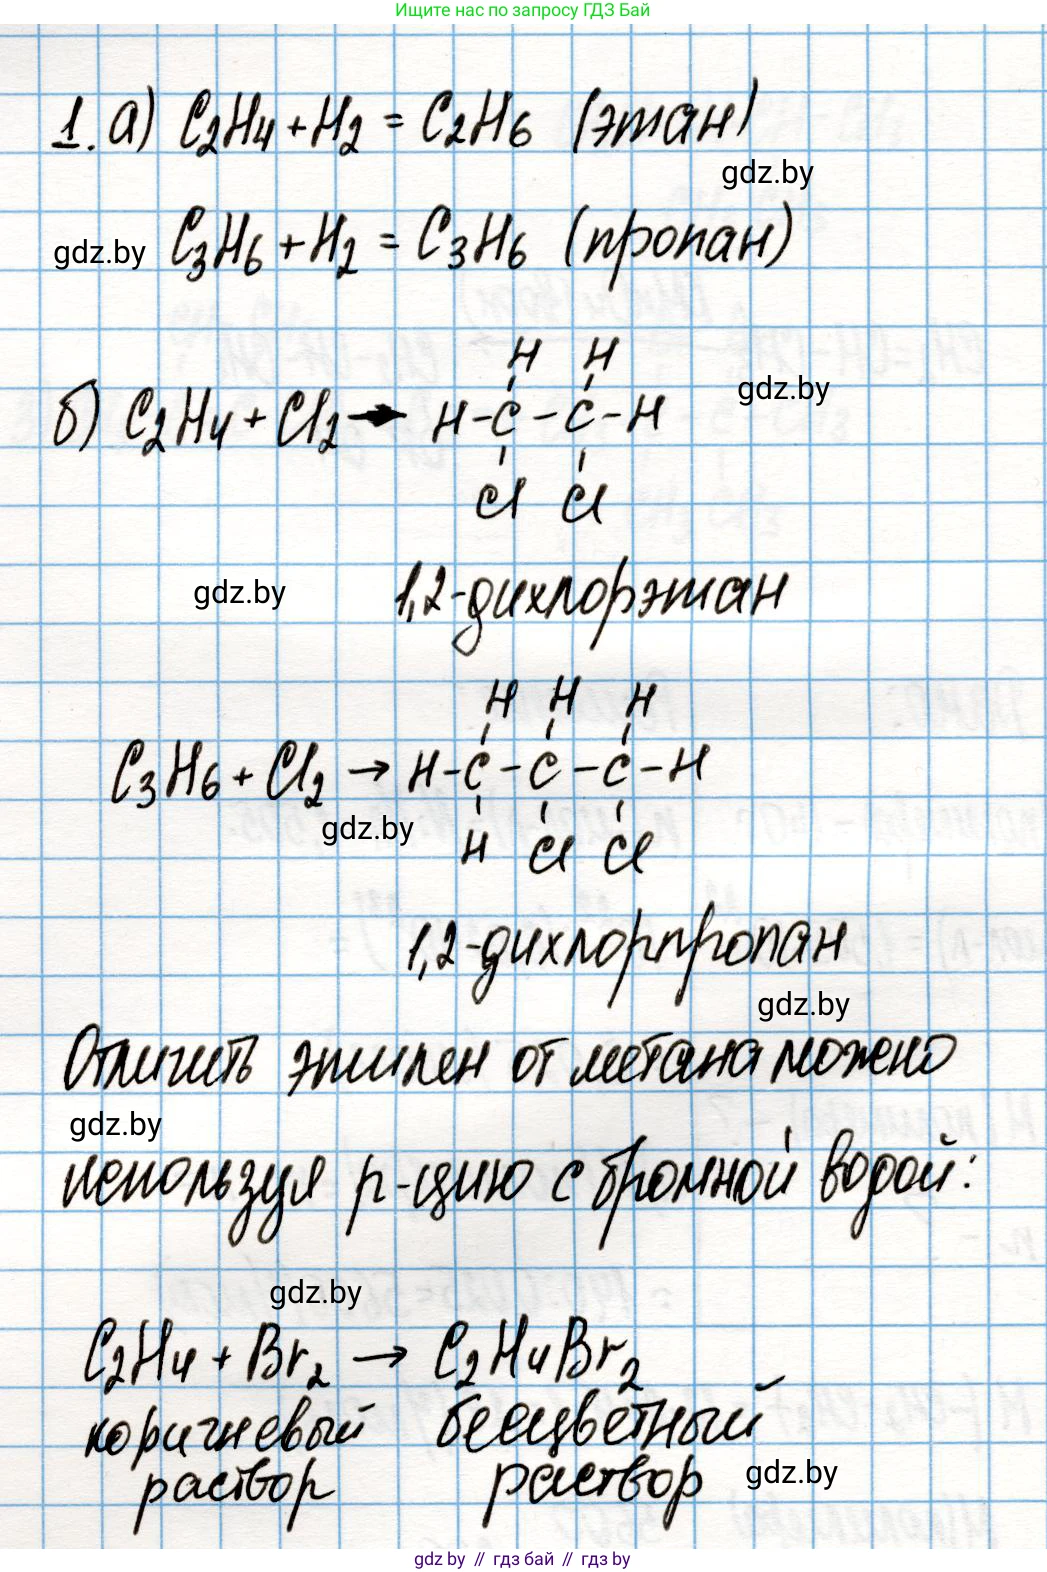 Ищите нас по запросу ГДЗ Бай
1. а) C2H4 + H2 = C2H6 (этан)
gdz.by
gdz.by C3H6 + H2 = C3H6 (пропан)
H H
gdz.by
б) C2H4 + Cl2 → H - C - C - H
Cl Cl
gdz.by 1,2-дихлорэтан
H H H
C3H6 + Cl2 → H - C - C - C - H
gdz.by
H Cl Cl
1,2-дихлорпропан
gdz.by
Отличить этилен от метана можено
gdz.by
используя р-цию с бромной водой:
gdz.by
C2H4 + Br2 → C2H4Br2
коричневый бесцветный
раствор раствор gdz.by
gdz.by // гдз бай // гдз by